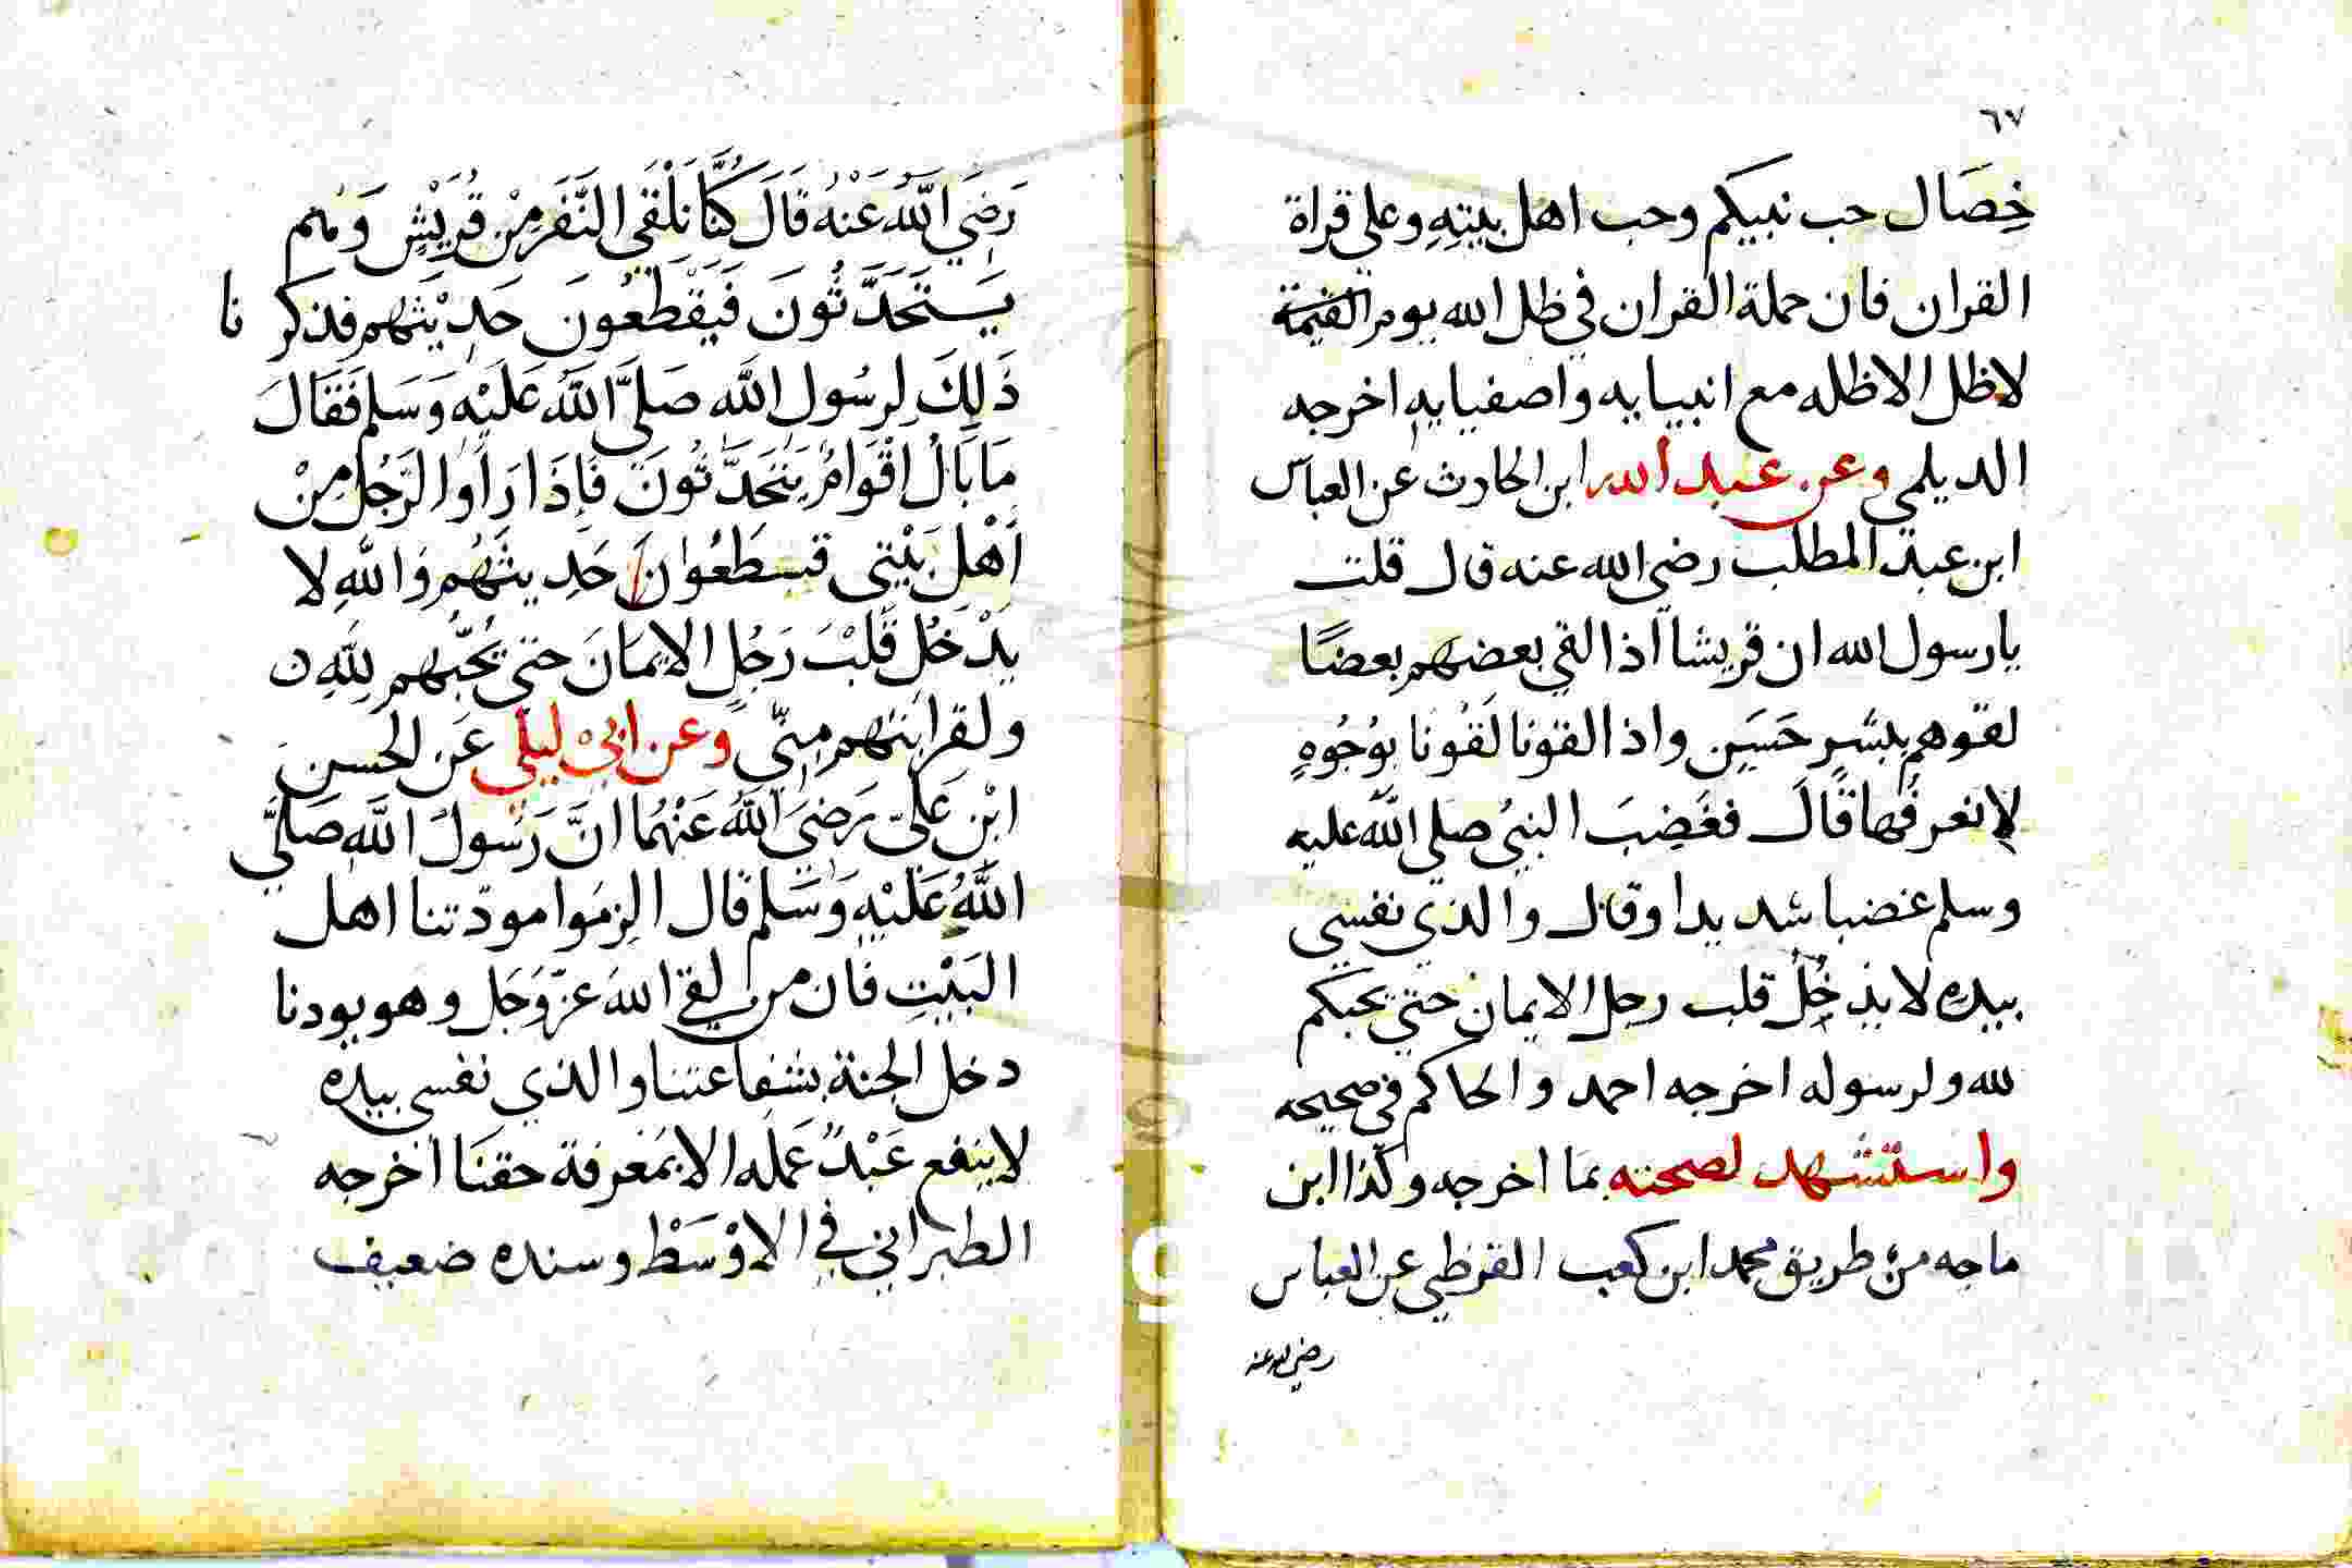 ٦٧
خِصَال حب نبيكم وحب اهل بيتِهِ وعلى قراة
القران فان حملة القران في ظل الله يوم القيمة
لاظل الاظله مع انبيايه واصفيايهِ اخرجه
الديلمي وعن عبد الله ابن الحارث عن العباس
ابن عبد المطلب رضي الله عنه قال قلت
يارسول الله ان قريشا اذا لقي بعضهم بعضًا
لقوهم ببشرٍ حَسَنٍ واذا لقونا لَقُونا بوُجُوهٍ
لانعرفُها قَالَ فغَضِبَ النبيُ صلى الله عليه
وسلم غضبا شديدا وقال والذي نفسي
بيده لايدخُلُ قلب رجل الايمان حتي يحبكم
لله ولرسوله اخرجه احمد والحاكم في صحيحه
واستشهد لصحته بما اخرجه وكذا ابن
ماجه من طريق محمد ابن كعب القرظي عن العباس
رضي الله عنه
رَضِيَ اللَّهُ عَنْهُ قَالَ كُنَّا نَلْقَى النَّفَرَ مِنْ قُرَيْشٍ وَهُم
يَسْتَحَدَّثُونَ فَيَقْطَعُونَ حَدِيْثَهُم فذكرنا
ذَلِكَ لِرسُول اللَّه صَلَّى اللَّهُ عَلَيْهِ وَسَلم فَقَالَ
مَا بَالُ اقْوَامٍ يَتَحَدَّثُونَ فَاِذَا رَاَوا الرَّجُلَ مِنْ
أَهْلِ بَيْتِي قسطَعُوانَ حَدِيثَهُم وَاللَّهِ لا
يَدْخُلُ قَلْبَ رَجُلٍ الايمَانَ حتى يُحِبَّهم لِلَّهِ ن
ولقرابَتهم مِنِّي وعن ابي ليلى عَن الحَسن
ابْنِ عَلىّ رَضيَ اللَّهُ عَنْهُمَا انَّ رَسُولَ اللَّهِ صَلَّى
اللَّهُ عَلَيْهِ وَسَلم قال الزمُوا مودّتنا اهل
البَيْتِ فان من لقي اللهَ عزّ وَجَل وهو يودنا
دخل الجنة بشفاعتنا والذي نفسي بيده
لاينفع عَبْدٌ عَمَله الا بمَعْرفة حقنَا اخرجه
الطبْراني في الاوْسَطْ وسنده ضعيف